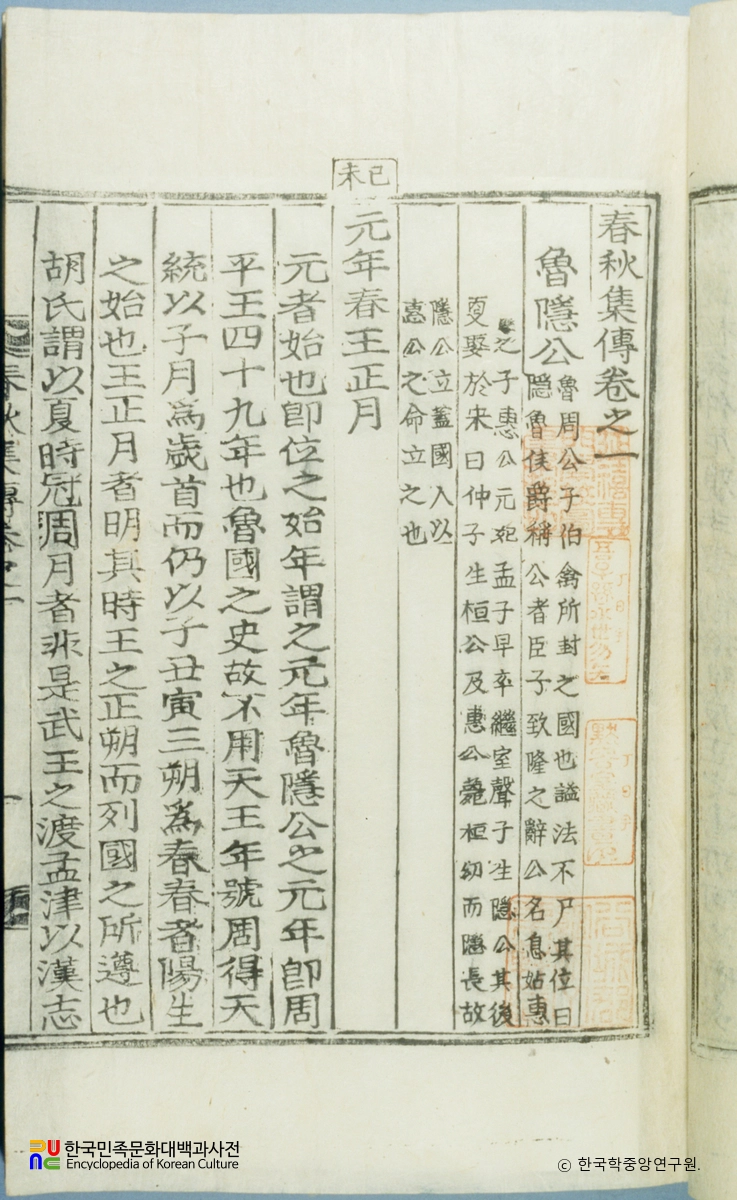 春秋集傳卷之一
魯隱公
魯周公子伯禽所封之國也謚法不尸其位曰
隠魯侯爵稱公者臣子致隆之辭公名息姑惠
公之子惠公元妃孟子早卒繼室聲子生隱公其後
夏娶於宋曰仲子生桓公及惠公薨桓幼而隱長故
隱公立蓋國人以
惠公之命立之也
己未
元年春王正月
元者始也卽位之始年謂之元年魯隱公之元年卽周
平王四十九年也魯國之史故不用天王年號周得天
統以子月爲歲首而仍以子丑寅三朔爲春春者陽生
之始也王正月者明其時王之正朔而列國之所遵也
胡氏謂以夏時冠周月者非是武王之渡孟津以漢志
春秋集傳卷之一
한국민족문화대백과사전
Encyclopedia of Korean Culture
© 한국학중앙연구원.